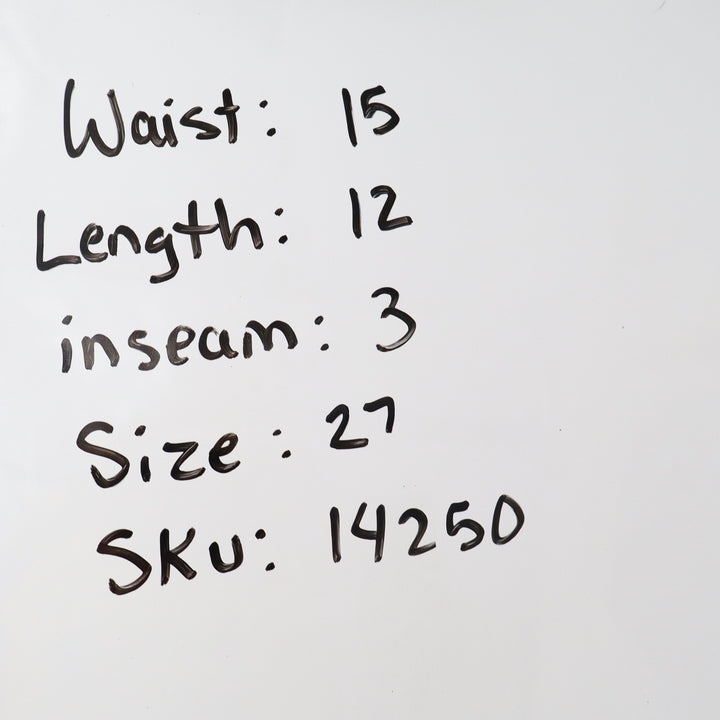 Waist: 15
Length: 12
inseam: 3
Size: 27
SKU: 14250